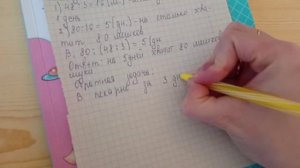 1 день.
2) 80:16=5 (дн.) - на столько хва-
тит 80 мешков
В. 80:(48:3)=5 (дн
Ответ: на 5 дней хватит 80 мешков
муки
Обратная задача.
В пекарне за 3 дн